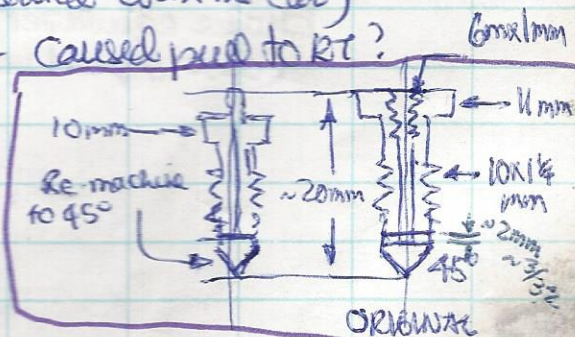 Caused pull to RT?
6mm x 1mm
10mm
11mm
Re-machine
to 45°
~20mm
10x1¼
mm
~2mm
45°
ORIGINAL